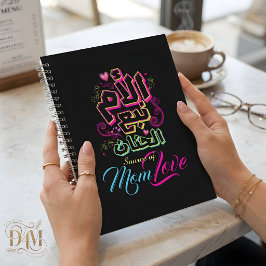 الأم
نبع
الحنان
Source of
Mom Love
MENU
DM